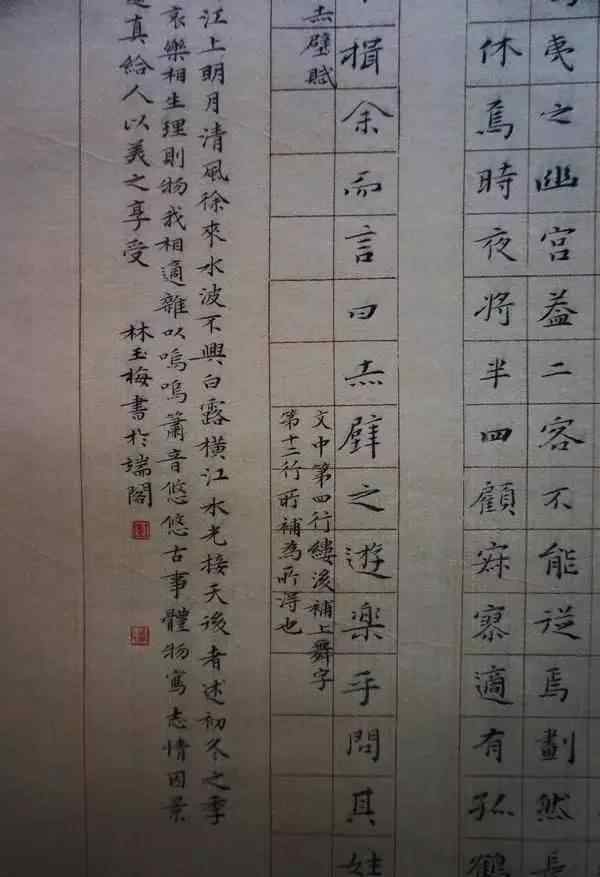 夷之幽宮蓋二客不能從焉劃然長
休焉時夜将半四顧寂寥適有孤鶴
揖余而言曰赤壁之遊樂乎問其姓
赤壁賦
文中第四行縷後補上舞字
第十二行所補為所得也
江上明月清風徐來水波不興白露橫江水光接天後者述初冬之季
哀樂相生理則物我相適雜以嗚嗚簫音悠悠古事體物寫志情因景
真給人以美之享受 林玉梅書於端閣